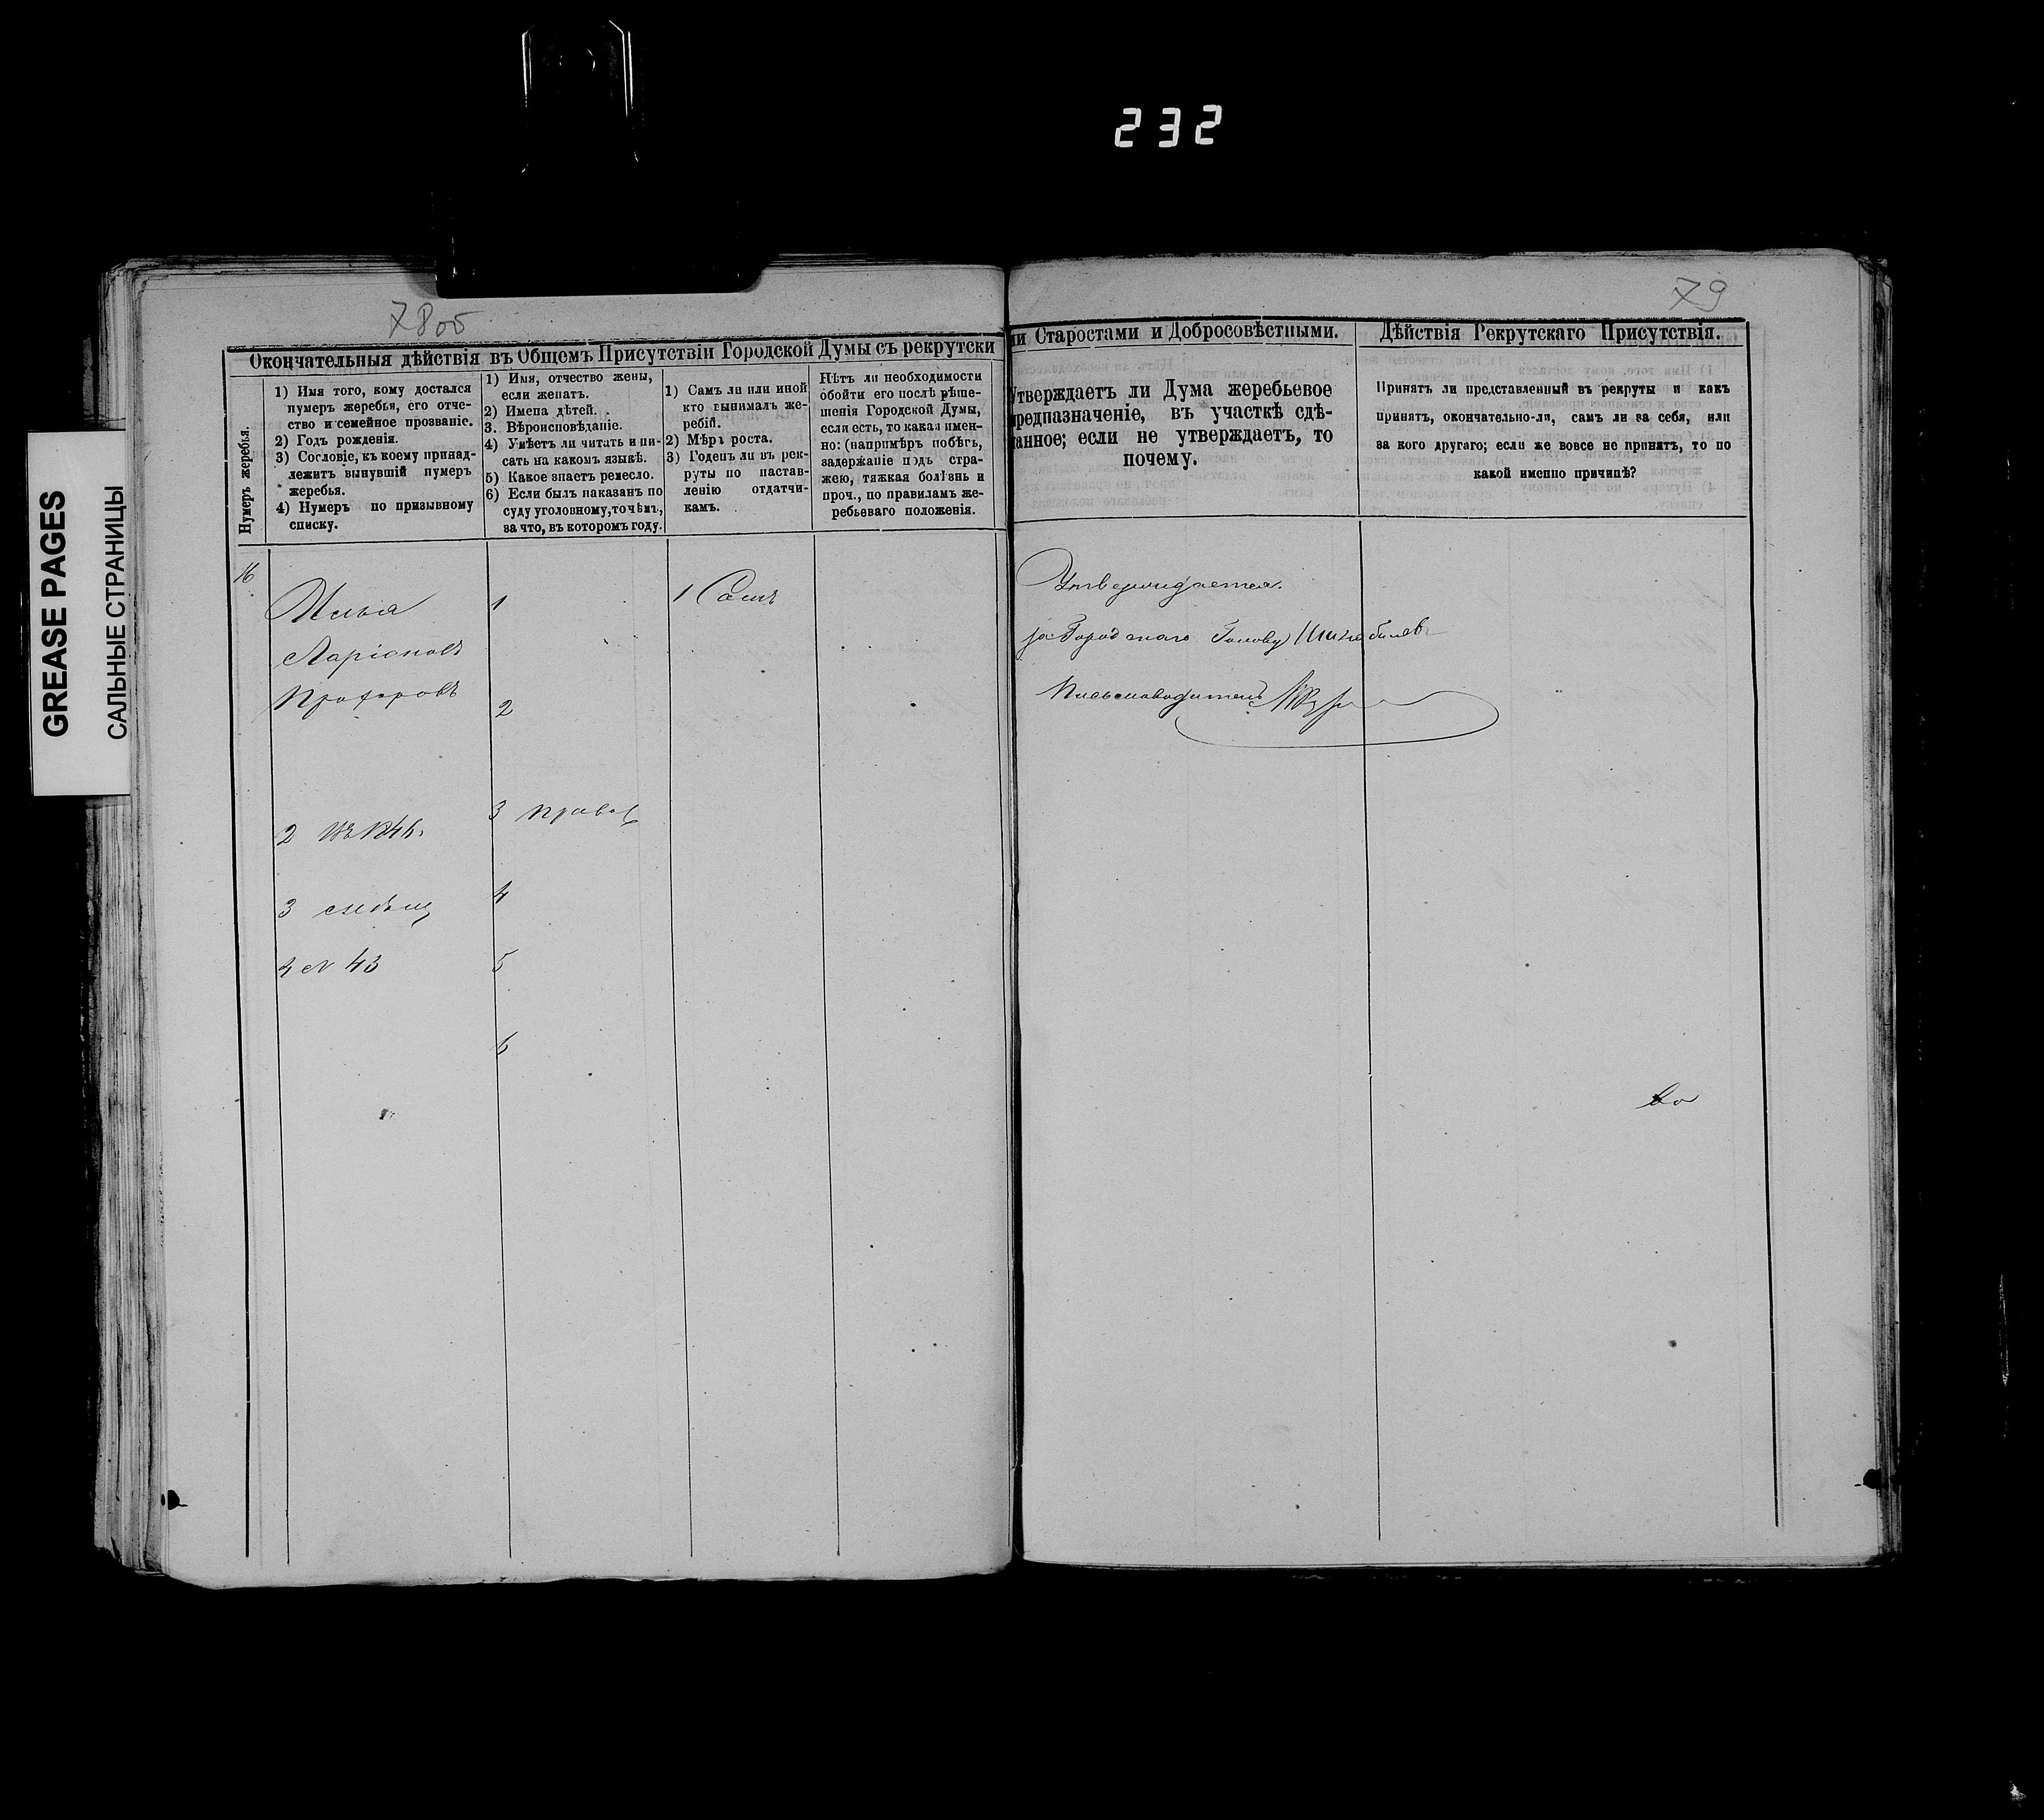 232
GREASE PAGES
САЛЬНЫЕ СТРАНИЦЫ
78об
79
Окончательныя дѣйствія въ Общемъ Присутствіи Городской Думы съ рекрутски
ми Старостами и Добросовѣстными.
Дѣйствія Рекрутскаго Присутствія.
Нумеръ жеребья.
1) Имя того, кому достался
нумеръ жеребья, его отче-
ство и семейное прозваніе.
2) Годъ рожденія.
3) Сословіе, къ коему принад-
лежитъ вынувшій нумеръ
жеребья.
4) Нумеръ по призывному
списку.
1) Имя, отчество жены,
если женатъ.
2) Имена дѣтей.
3. Вѣроисповѣданіе.
4) Умѣетъ ли читать и пи-
сать на какомъ языкѣ.
5) Какое знаетъ ремесло.
6) Если былъ наказанъ по
суду уголовному, то чѣмъ,
за что, въ которомъ году.
1) Самъ ли или иной
кто вынималъ же-
ребій.
2) Мѣра роста.
3) Годенъ ли въ рек-
руты по настав-
ленію отдатчи-
камъ.
Нѣтъ ли необходимости
обойти его послѣ рѣше-
шенія Городской Думы,
если есть, то какая имен-
но: (напримѣръ побѣгъ,
задержаніе подъ стра-
жею, тяжкая болѣзнь и
проч., по правиламъ же-
ребьеваго положенія.
Утверждаетъ ли Дума жеребьевое
предназначеніе, въ участкѣ сдѣ-
ланное; если не утверждаетъ, то
почему.
Принятъ ли представленный въ рекруты и какъ
принятъ, окончательно-ли, самъ ли за себя, или
за кого другаго; если же вовсе не принятъ, то по
какой именно причинѣ?
16
Илья
Ларіоновъ
Прохоровъ
2 въ 1846.
3
4 № 43
1
2
3 правос
4
5
6
1 Самъ
Утверждается.
за Городскаго Голову
Письмоводитель